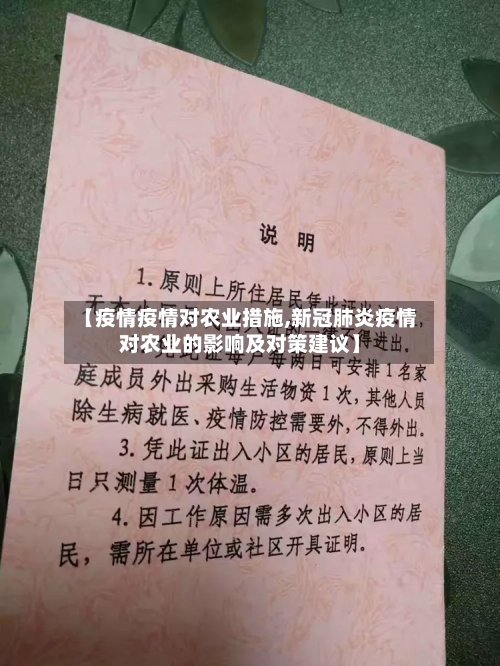 说 明
1.原则上所住居民凭此证出
【疫情疫情对农业措施,新冠肺炎疫情
对农业的影响及对策建议】
得进出。
每户每两日可安排1名家
庭成员外出采购生活物资1次,其他人员
除生病就医、疫情防控需要外,不得外出。
3.凭此证出入小区的居民,原则上当
日只测量1次体温。
4.因工作原因需多次出入小区的居
民,需所在单位或社区开具证明。